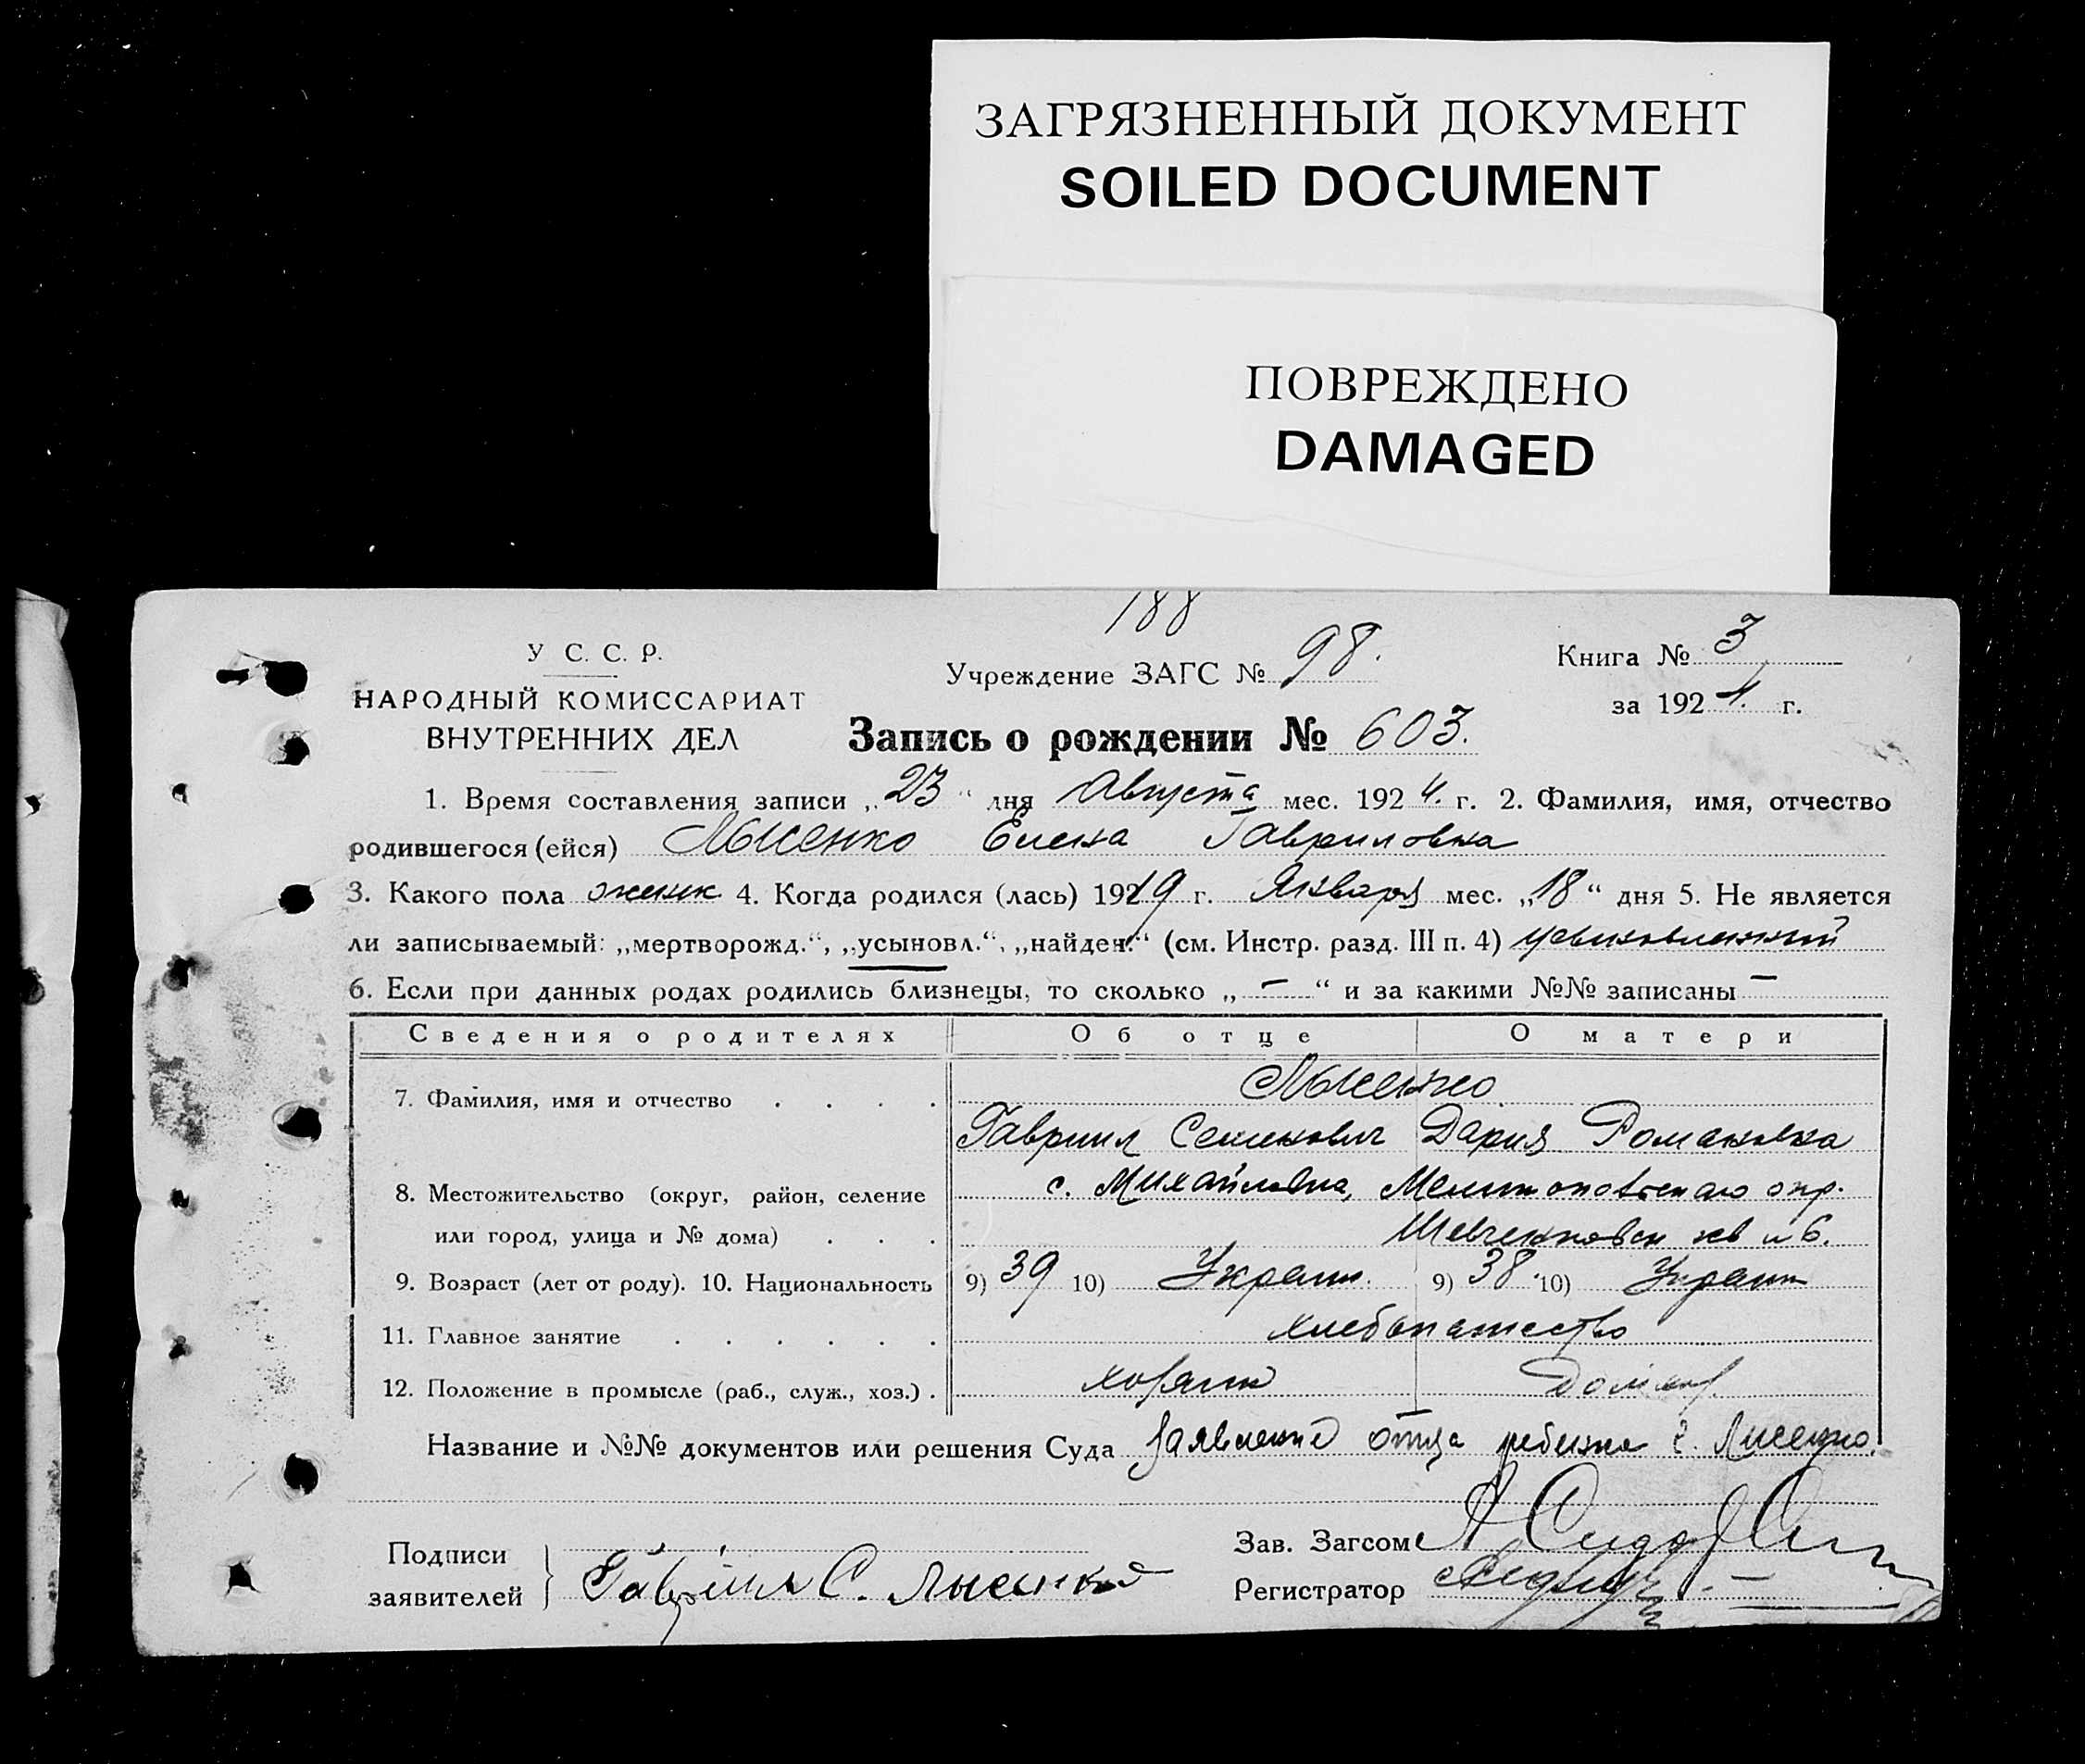 ЗАГРЯЗНЕННЫЙ ДОКУМЕНТ
SOILED DOCUMENT
ПОВРЕЖДЕНО
DAMAGED
188
У С. С. Р.
НАРОДНЫЙ КОМИССАРИАТ
ВНУТРЕННИХ ДЕЛ
Учреждение ЗАГС № 98.
Книга № 3
за 1924. г.
Запись о рождении № 603.
1. Время составления записи „23“ дня Августа мес. 1924. г. 2. Фамилия, имя, отчество
родившегося (ейся) Лысенко Елена Гавриловна
3. Какого пола женск 4. Когда родился (лась) 1919 г. Января мес. „18“ дня 5. Не является
ли записываемый: „мертворожд.“, „усыновл.“, „найден.“ (см. Инстр. разд. III п. 4) усыновленный
6. Если при данных родах родились близнецы, то сколько „—“ и за какими №№ записаны —
Сведения о родителях Об отце О матери
7. Фамилия, имя и отчество . . . . Лысенко
Гавриил Семенович Дария Романовна
8. Местожительство (округ, район, селение с. Михайловка, Мелитопольского окр.
или город, улица и № дома) . . . Шевченковск
9. Возраст (лет от роду). 10. Национальность 9) 39 10) Украин. 9) 38 10) Украин
11. Главное занятие . . . . . . хлебопашество
12. Положение в промысле (раб., служ., хоз.) . хозяин Домхоз.
Название и №№ документов или решения Суда Заявление отца ребенка г. Лисенко.
Подписи
заявителей } Гавриил С. Лысенко
Зав. Загсом
Регистратор